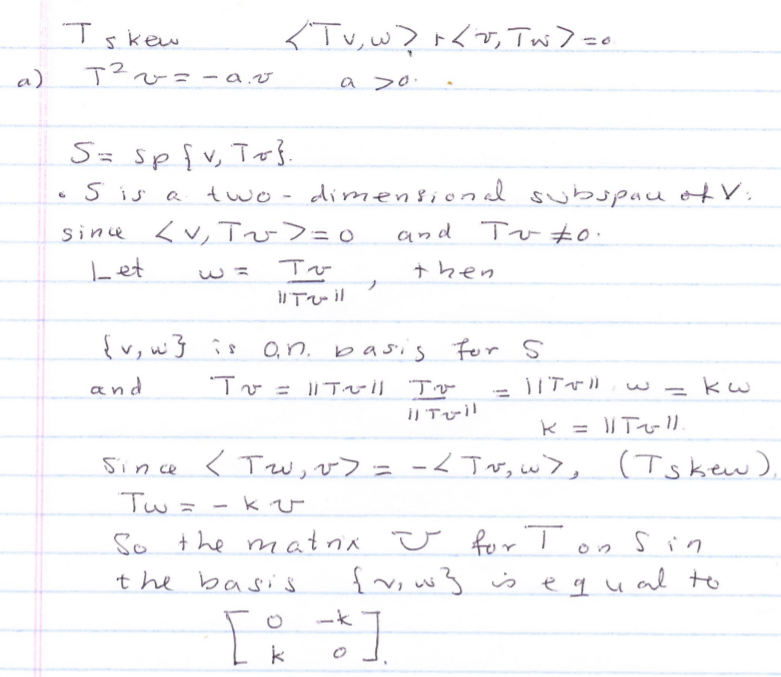 T skew <Tv,w> + <v,Tw> = 0
a) T²v = -a.v a > 0.
S = sp {v, Tv}.
. S is a two-dimensional subspace of V.
since <v, Tv> = 0 and Tv ≠ 0.
Let w = Tv/||Tv||, then
{v,w} is o.n. basis for S
and Tv = ||Tv|| Tv/||Tv|| = ||Tv|| w = kw
k = ||Tv||.
Since <Tw,v> = -<Tv,w>, (T skew).
Tw = -kv
So the matrix U for T on S in
the basis {v,w} is equal to
[0 -k]
[k 0].